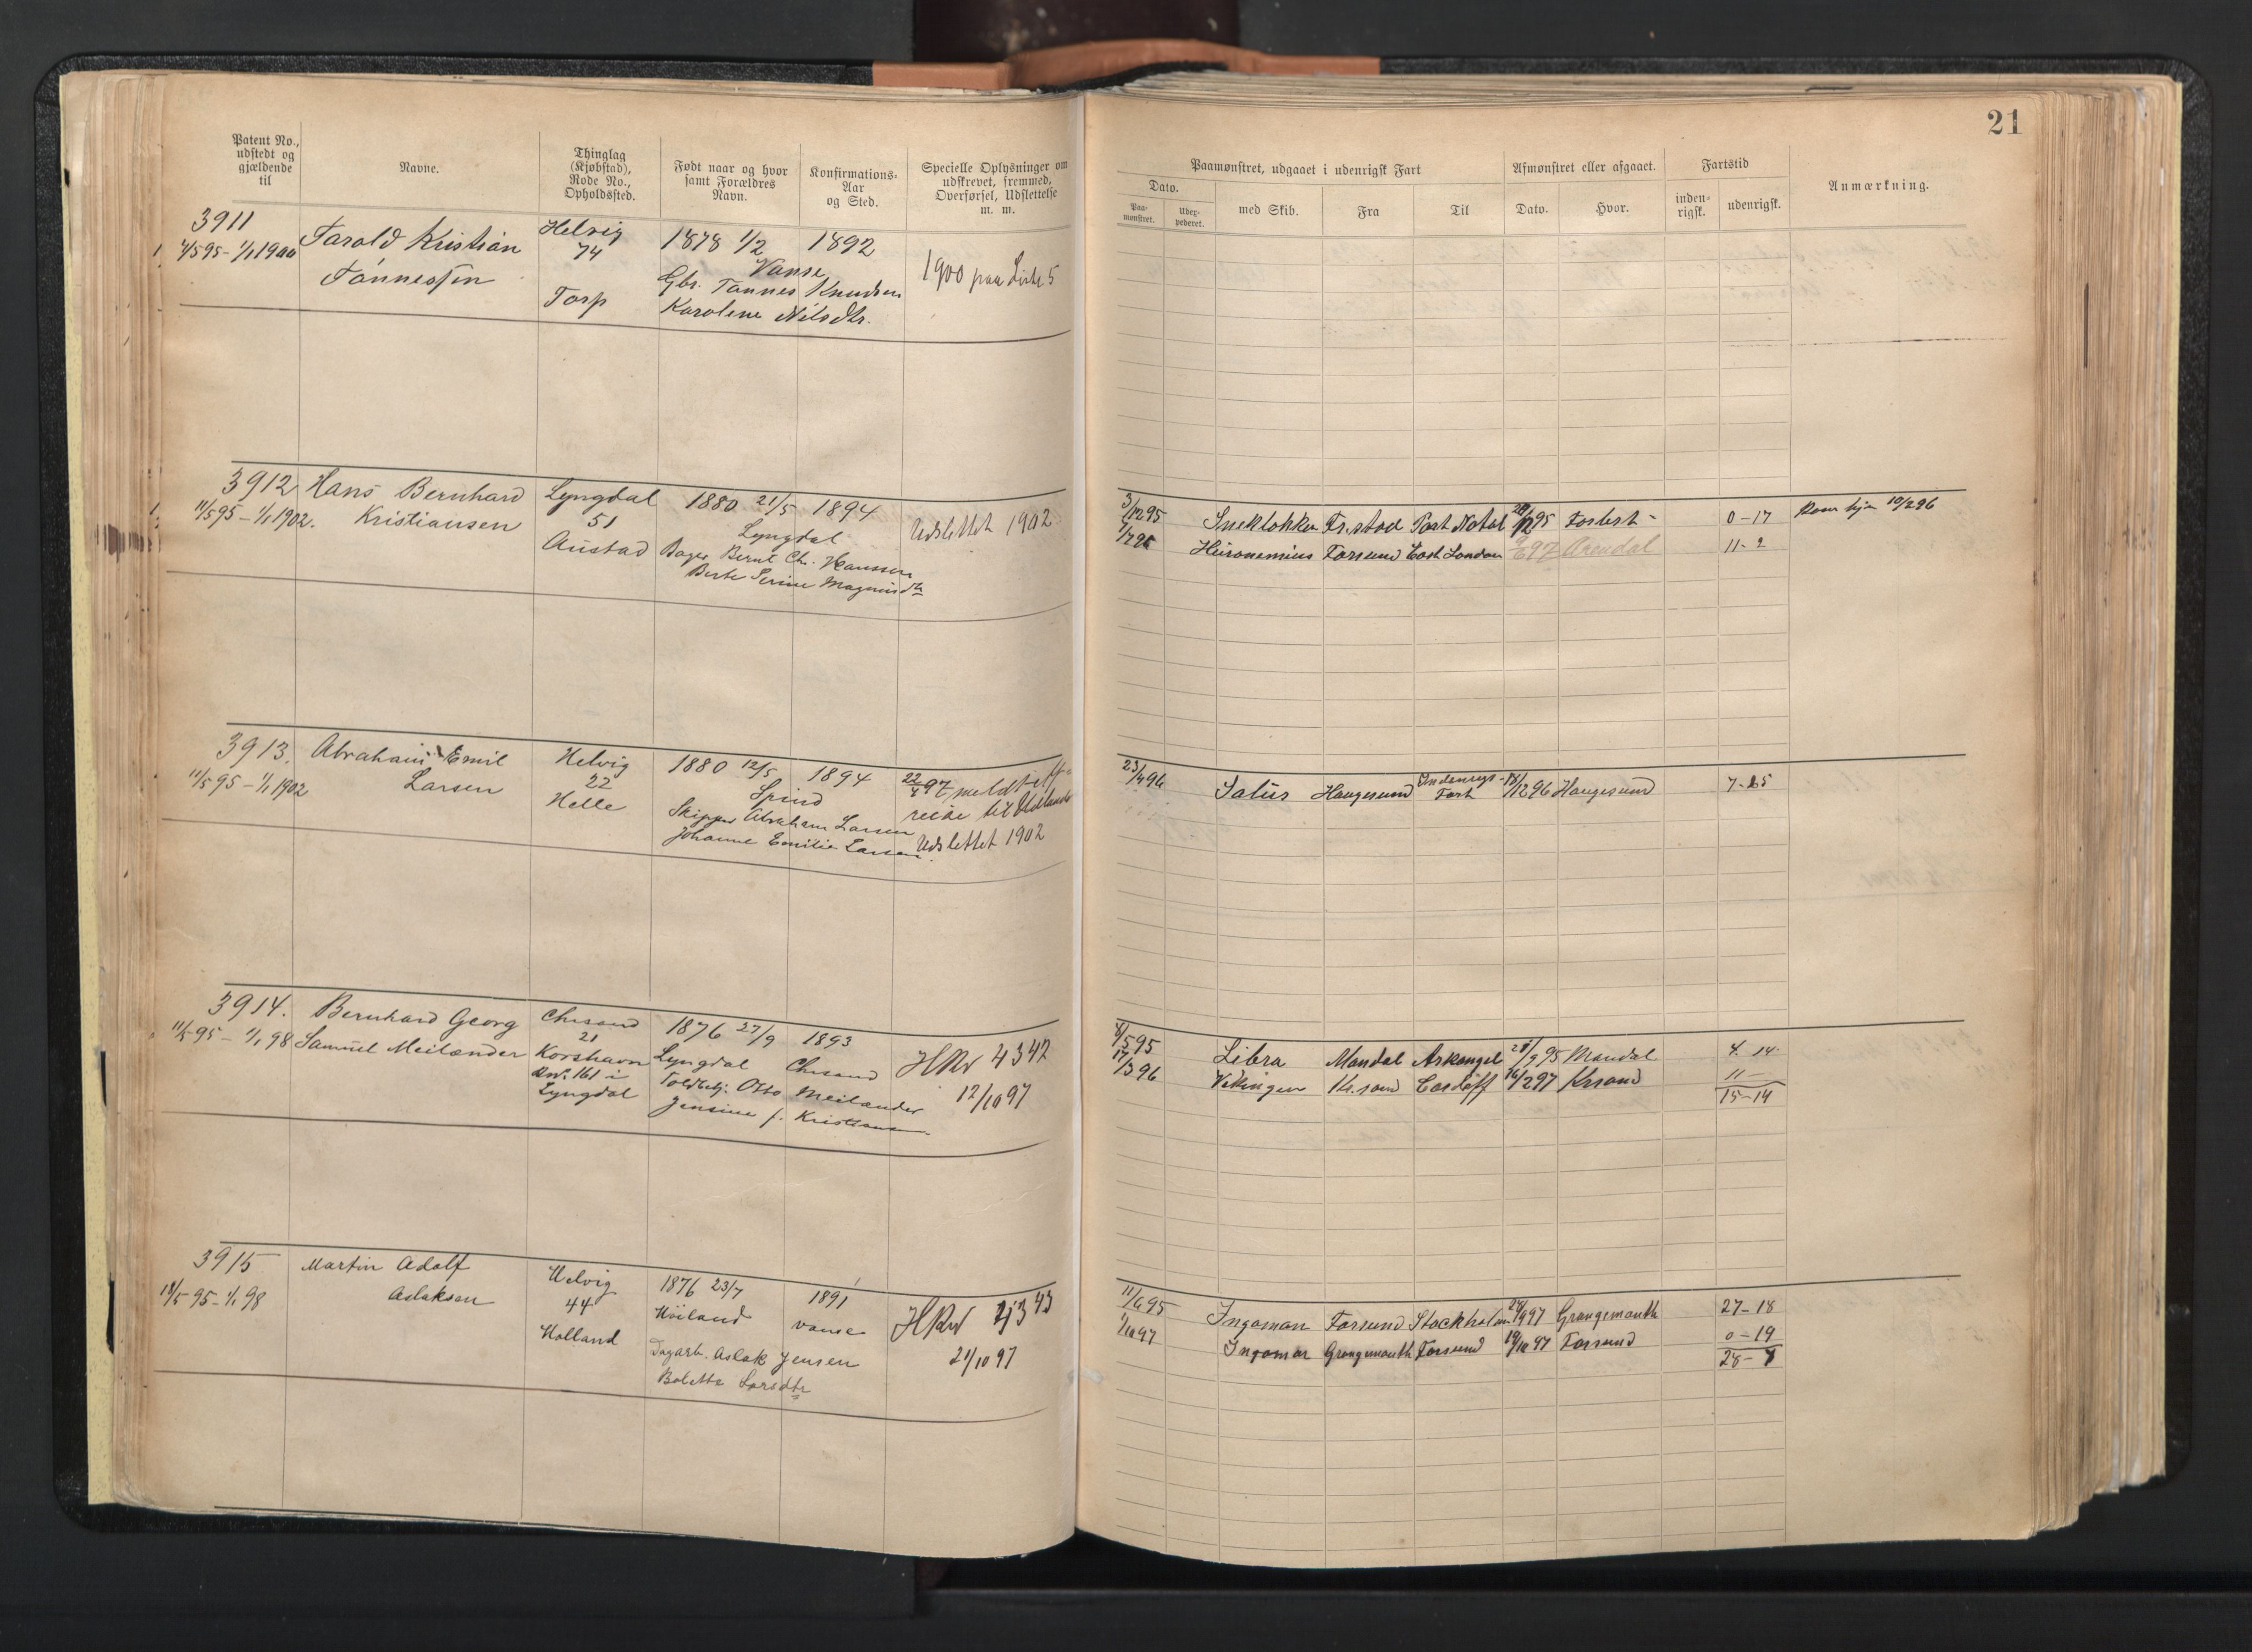 21
Patent No., udstedt og gjældende til
Navne.
Thinglag (Kjøbstad), Rode No., Opholdssted.
Født naar og hvor samt Forældres Navn.
Konfirmations-Aar og Sted.
Specielle Oplysninger om udskrevet, fremmed, Overførsel, Udslettelse m. m.
Paamønstret, udgaaet i udenrigsk Fart
Afmønstret eller afgaaet.
Fartstid
Anmærkning.
Dato.
Paa-mønstret.
Uber-pederet.
med Skib.
Fra
Til
Dato.
Hvor.
inden-rigsk.
udenrigsk.
3911 Tarald Kristian Helvig 1878 1/2 1892
4/5 95 - 1/1 1900 Tønnessen 74 Vanse 1900 paa Liste 5
Torp Gbr. Tønnes Knudsen
Karoline Nilsdtr.
3912 Hans Bernhard Lyngdal 1880 21/5 1894
11/5 95 - 1/1 1902. Kristiansen 51 Lyngdal Udslettet 1902
Austad Bager Bernt Chr. Hanssen
Berte Serine Magnusdtr
3/12 95 Sneklokken Fr.stad Port Natal 28/12 95 Forlist - 0-17 Kom hjm 10/2 96
Hieronemius Farsund East London 97 Arendal 11-2
3913. Abraham Emil Helvig 1880 12/5 1894
11/5 95 - 1/1 1902 Larsen 22 Spind 97 meldt
Helle Skipper Abraham Larsen reise til Udlandet
Johanne Emilie Larsen. Udslettet 1902
23/4 96 Salus Haugesund Indenrigs Fart 18/12 96 Haugesund 7-25
3914. Bernhard Georg Chrsand 1876 27/9 1893
11/5 95 - 1/1 98 Samuel Meilænder 21 Lyngdal Chrsand HRv 4342
Korshavn Toldbetj. Otto Meilænder 12/10 97
161 i Jensine f. Kristiansen
Lyngdal
8/5 95 Libra Mandal Arkangel 21/9 95 Mandal 4-14
17/3 96 Vikingen Kr.sand Cardiff 16/2 97 Krsand 11-
15-14
3915 Martin Adolf Helvig 1876 23/7 1891
18/5 95 - 1/1 98 Aslaksen 44 Høiland Vanse HRv 4343
Holland Dagarb. Aslak Jensen 21/10 97
Bolette Larsdtr
11/6 95 Ingoman Farsund Stockholm 28/9 97 Grangemouth 27-18
1/10 97 Ingomar Grangemouth Farsund 19/10 97 Farsund 0-19
28-7